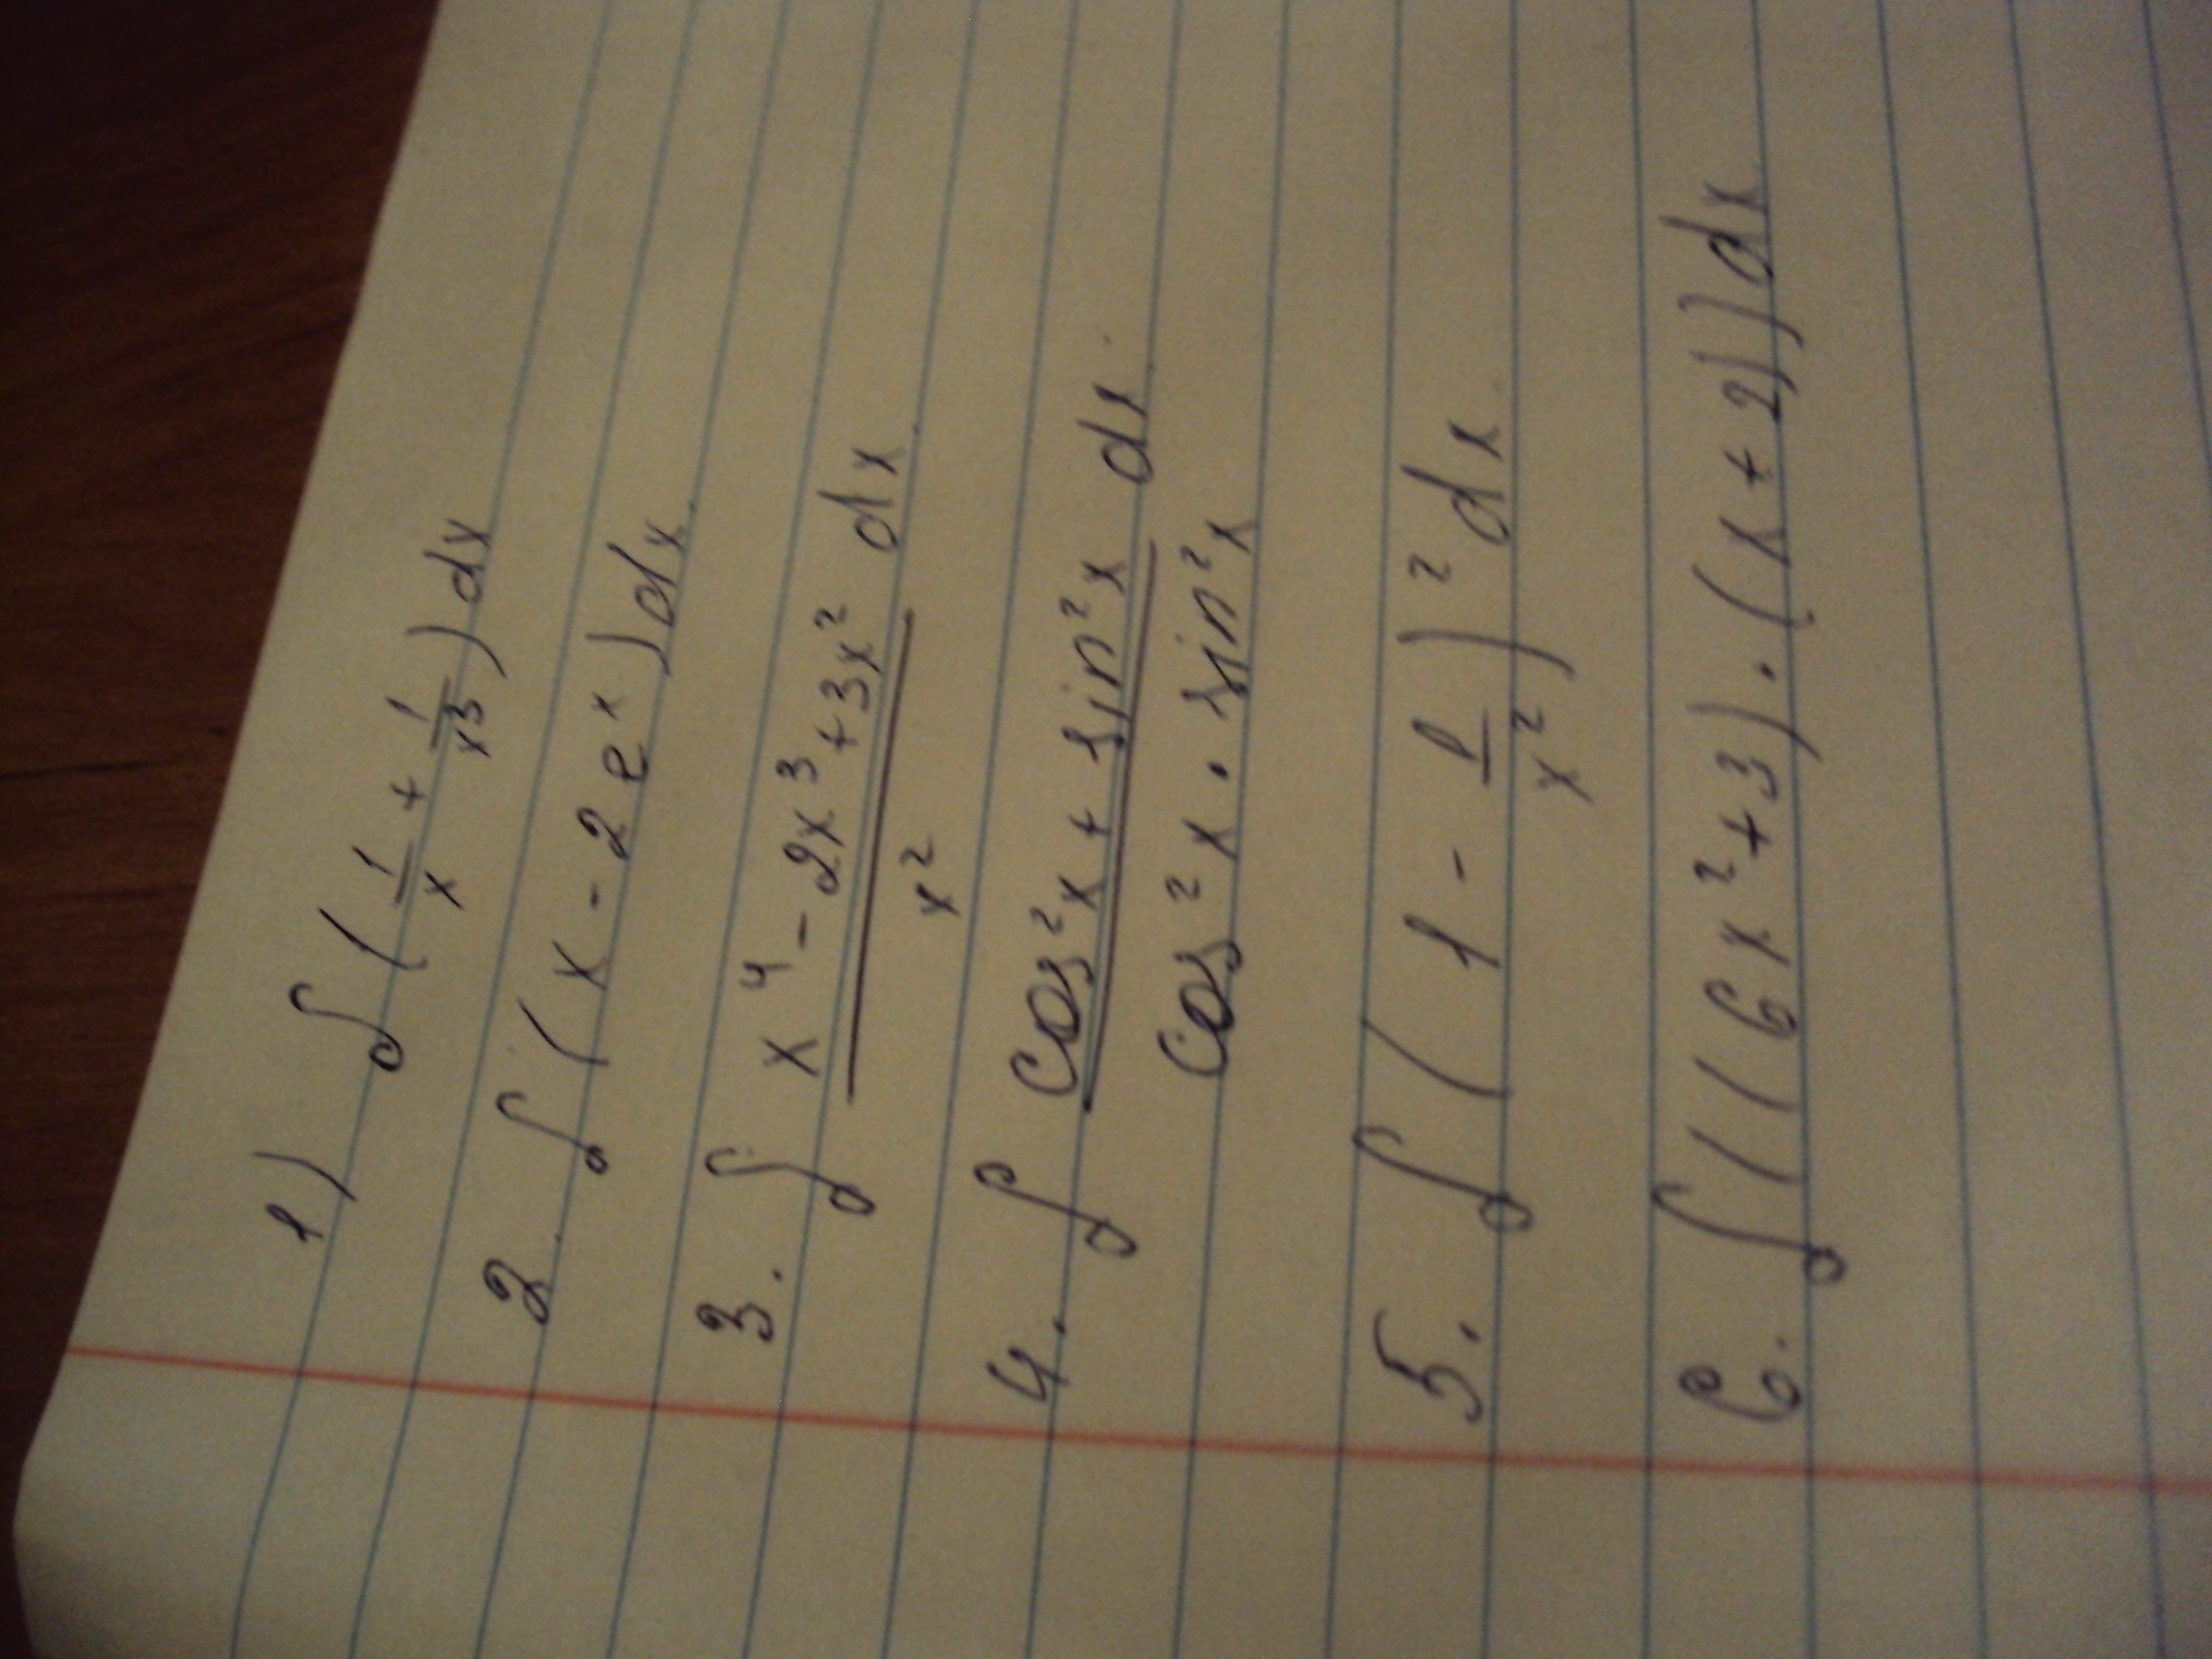 1) ∫ (1/x + 1/x³) dx
2. ∫ (x - 2e^x) dx.
3. ∫ (x⁴ - 2x³ + 3x²)/x² dx.
4. ∫ (cos²x + sin²x)/(cos²x · sin²x) dx.
5. ∫ (1 - 1/x²)² dx.
6. ∫ ((6x² + 3) · (x + 2)) dx